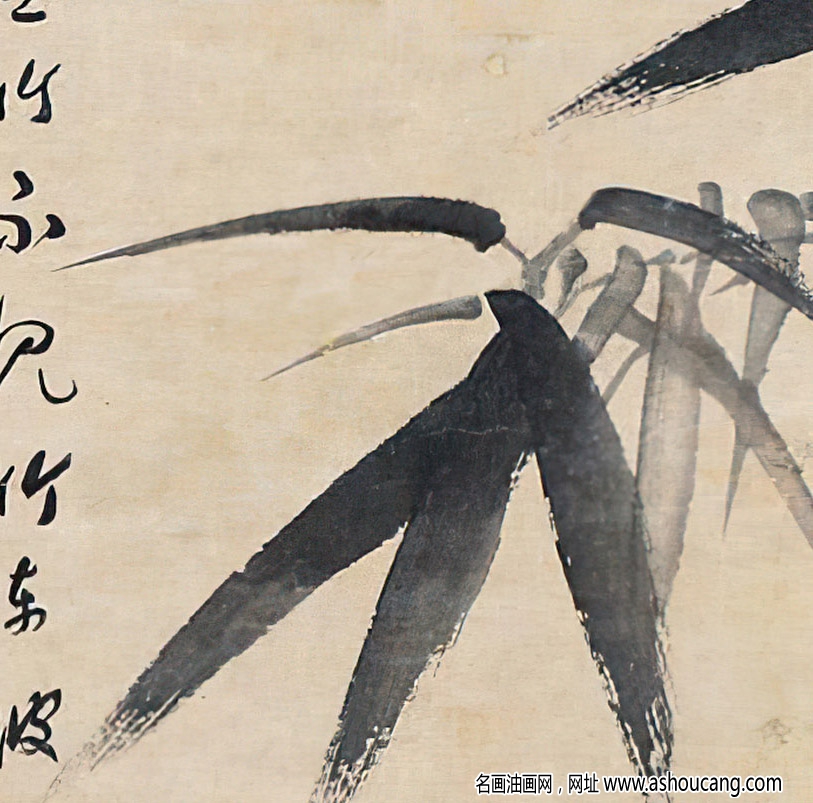 竹不見竹東坡
名画油画网，网址 www.ashoucang.com